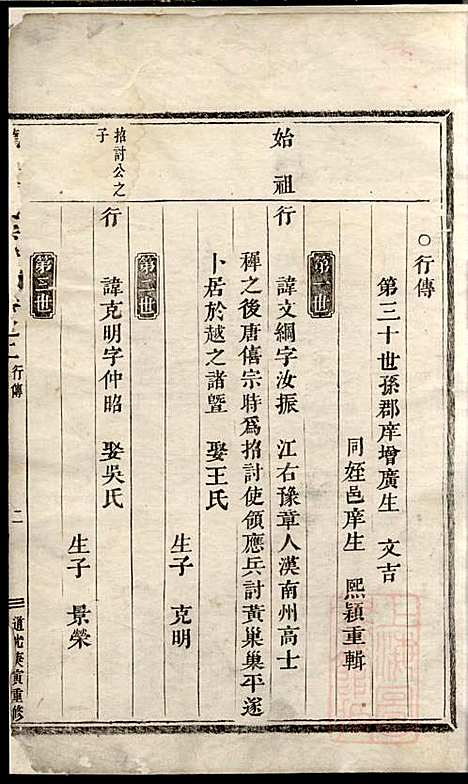 ○行傳
第三十世孫郡庠增廣生 文吉
同姪邑庠生 熙穎重輯
第一世
始祖行 諱文綱字汝振 江右豫章人漢南州高士
穉之後唐僖宗時為招討使領應兵討黃巢巢平遂
卜居於越之諸曁 娶王氏
生子 克明
第二世
招討公之子
行 諱克明字仲昭 娶吳氏
生子 景榮
第三世
行傳
二
道光庚寅重修